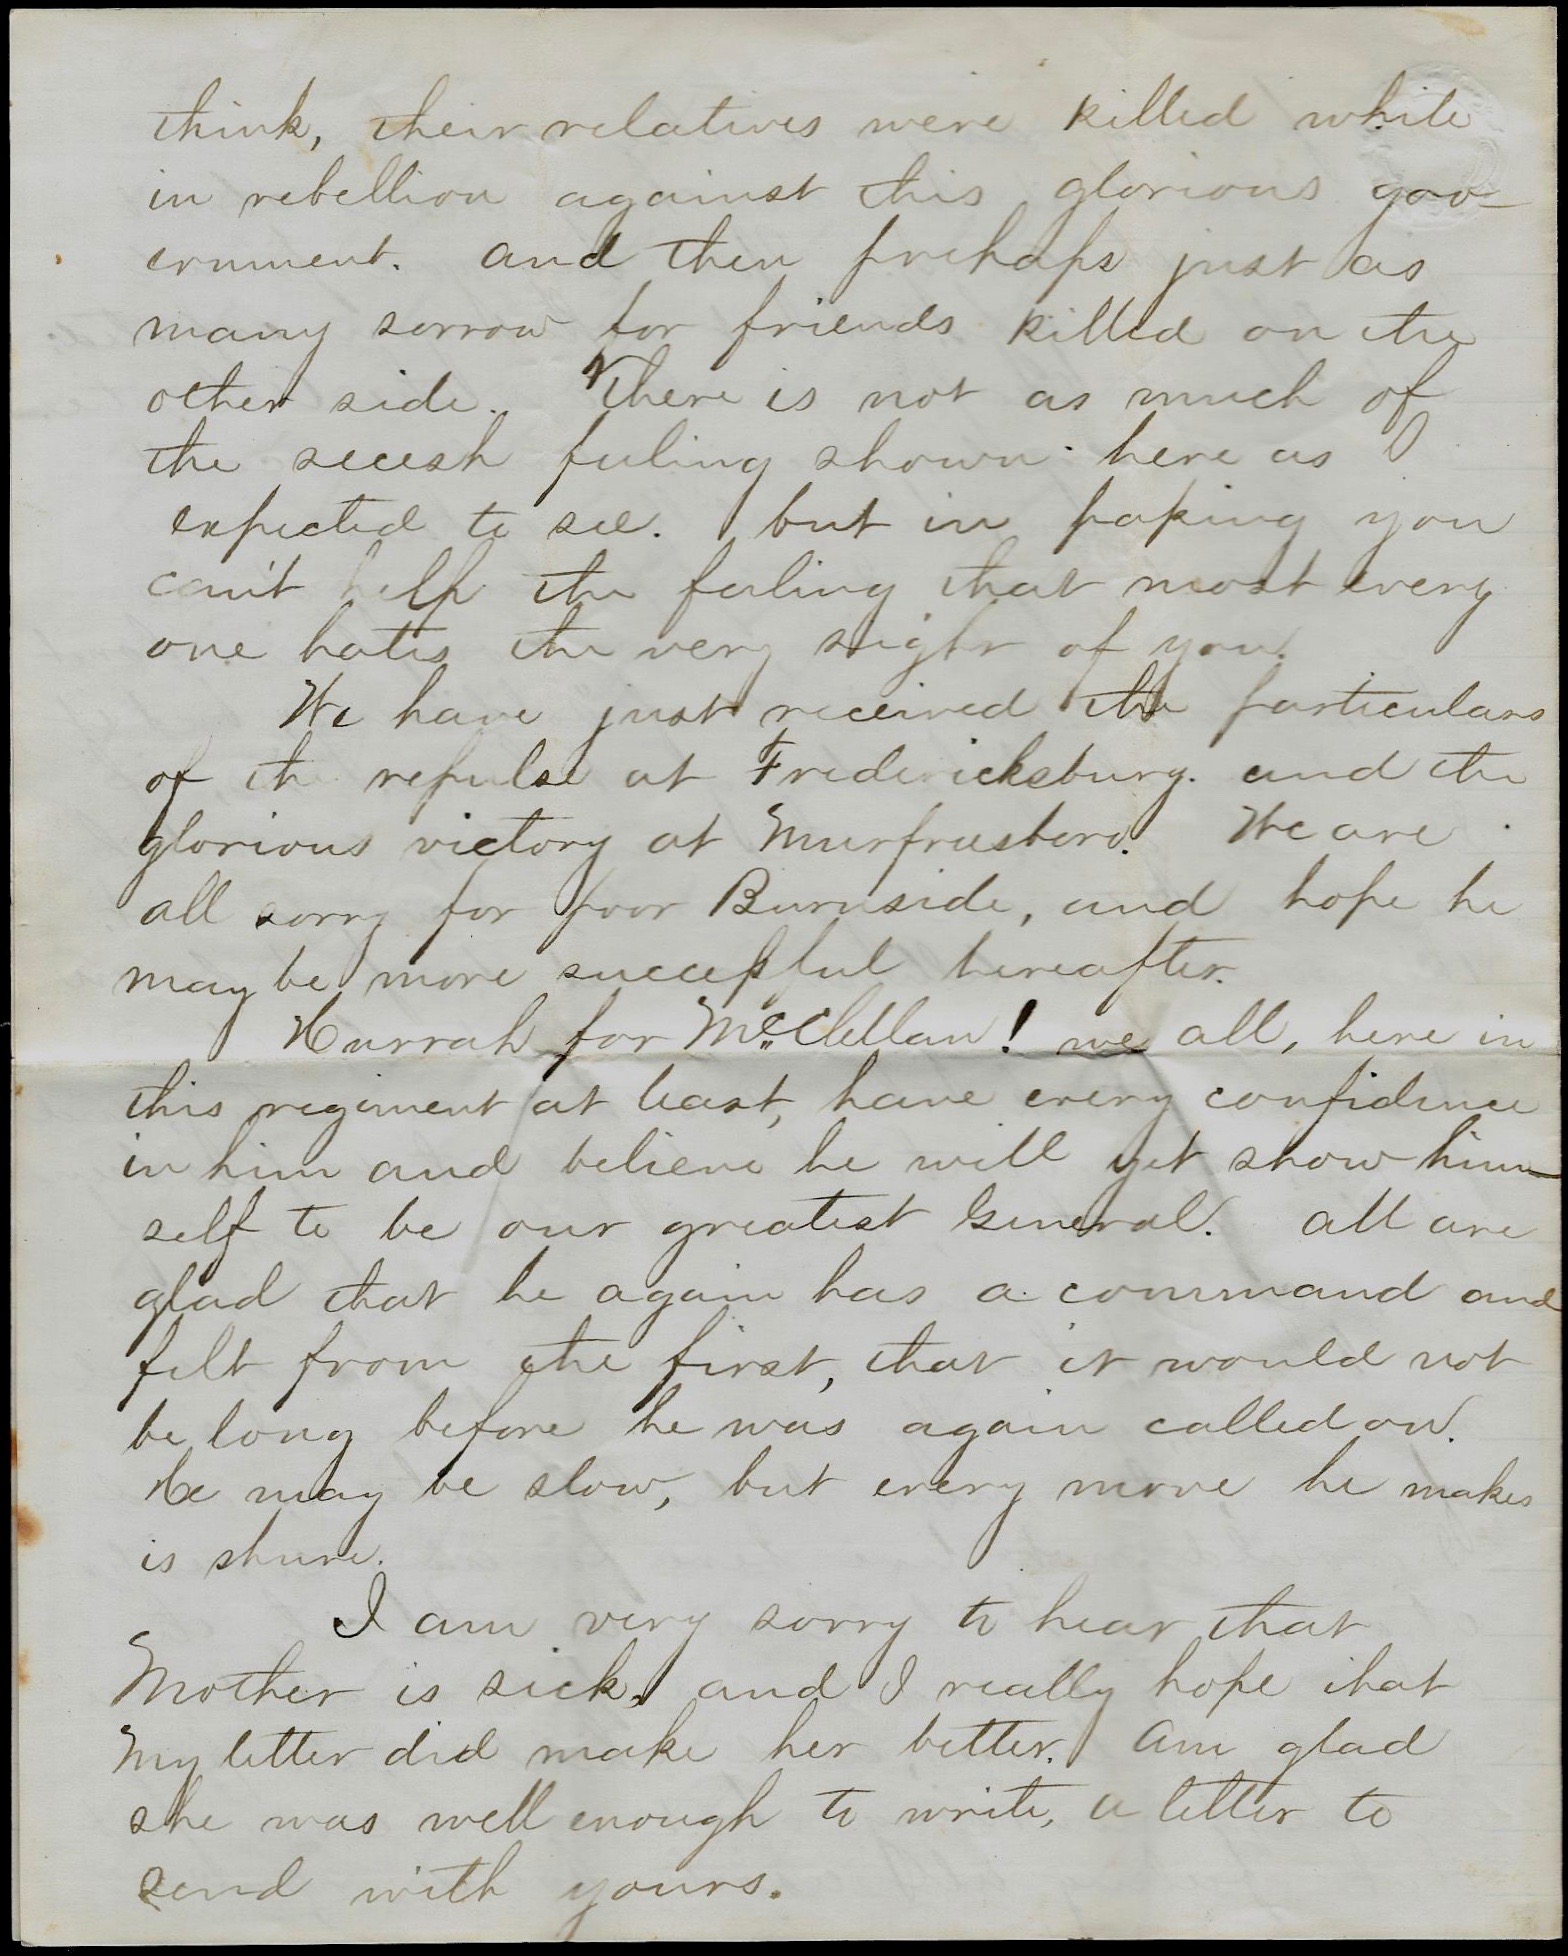 think, their relatives were killed while
in rebellion against this glorious gov-
ernment. and then prehaps just as
many sorrow for friends killed on the
other side. There is not as much of
the secesh feeling shown here as I
expected to see. but in passing you
can't help the feeling that most every
one hates the very sight of you.
We have just received the particulars
of the repulse at Fredericksburg. and the
glorious victory at Murfreesboro. We are
all sorry for poor Burnside, and hope he
may be more successful hereafter.
Hurrah for McClellan! we all, here in
this regiment at least, have every confidence
in him and believe he will yet show him-
self to be our greatest General. all are
glad that he again has a command and
felt from the first, that it would not
be long before he was again called on.
He may be slow, but every move he makes
is shure.
I am very sorry to hear that
Mother is sick, and I really hope that
my letter did make her better. Am glad
she was well enough to write, a letter to
send with yours.